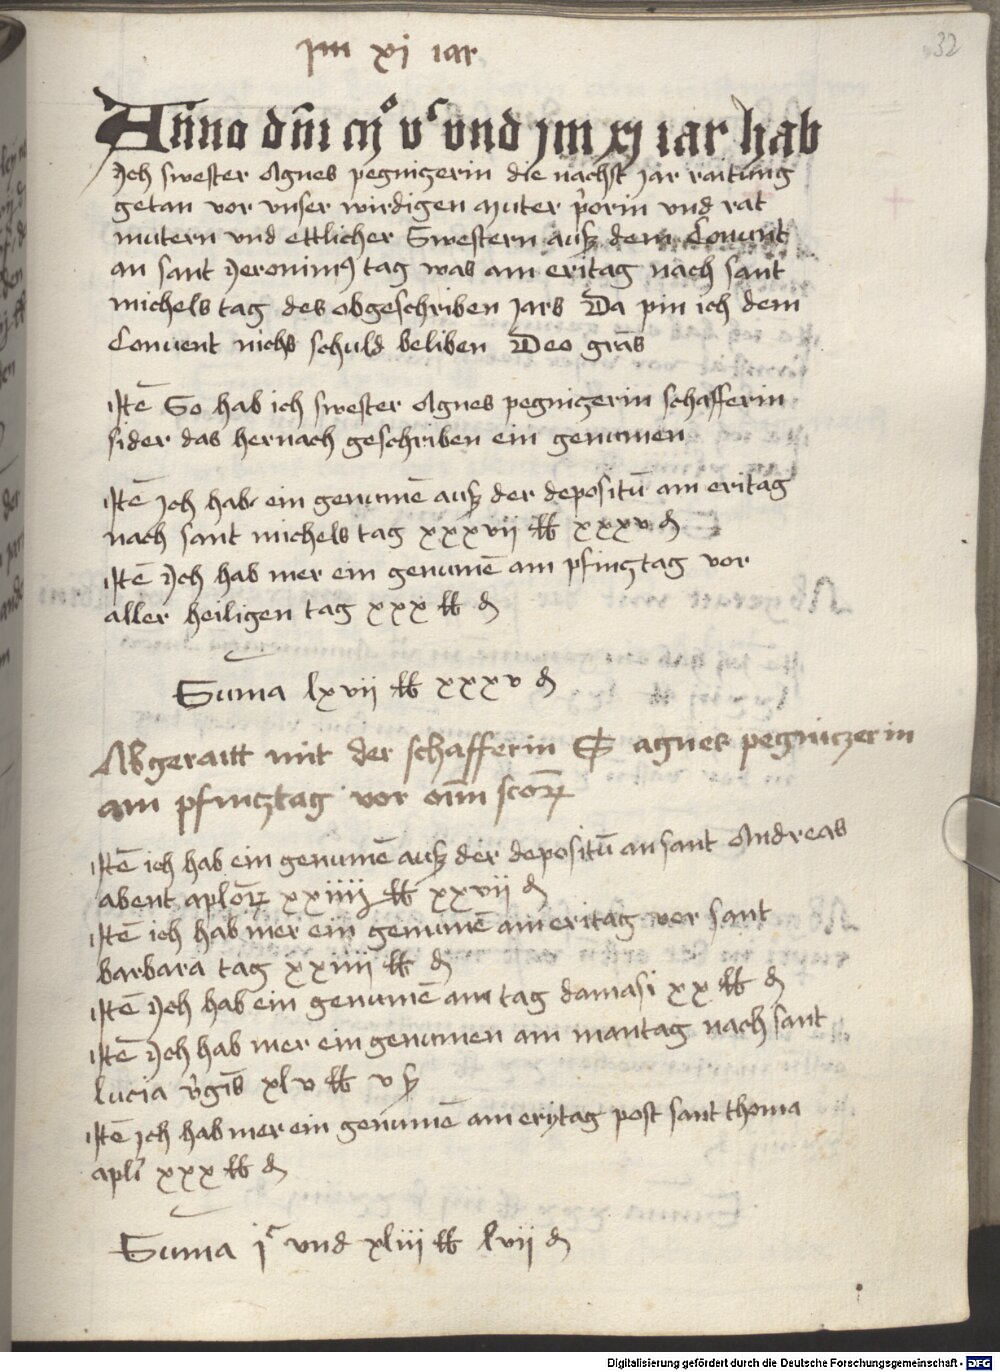 32
jm xj iar
Anno dm̄ mͦ vᶜ vnd jm xj iar hab
Jch swester Agnes pegnitzerin die nachst jar raitung
getan vor vnser wirdigen muter p̄orin vnd rat
mutern vnd ettlicher Swestern ausz dem Conuent
an sant Jeronimꝰ tag was am eritag nach sant
michels tag des obgeschriben jars Da pin ich dem
Conuent nichs schuld beliben Deo gr̄as
Itē So hab ich swester Agnes pegnitzerin schafferin
sider das hernach geschriben ein genumen
Itē Jch hab ein genumē ausz der depositū am eritag
nach sant michels tag xxxvii ℔ xxxv ₰
Itē Jch hab mer ein genumē am pfintztag vor
aller heiligen tag xxx ℔ ₰
Suma lxvii ℔ xxxv ₰
Abgeraitt mit der schafferin S agnes pegniczerin
am pfincztag vor om̄ scōrꝝ
Itē ich hab ein genumē ausz der depositū an sant Andreas
abent aplōrꝝ xxiiij ℔ xxvii ₰
Itē ich hab mer ein genumē am eritag vor sant
barbara tag xxiiii ℔ ₰
Itē Jch hab ein genumē am tag damasi xx ℔ ₰
Itē Jch hab mer ein genumen am mantag nach sant
lucia v̄gīs xlv ℔ v ß
Itē ich hab mer ein genumē am erytag post sant thoma
apłi xxx ℔ ₰
Suma jᶜ vnd xliii ℔ lvii ₰
Digitalisierung gefördert durch die Deutsche Forschungsgemeinschaft - DFG